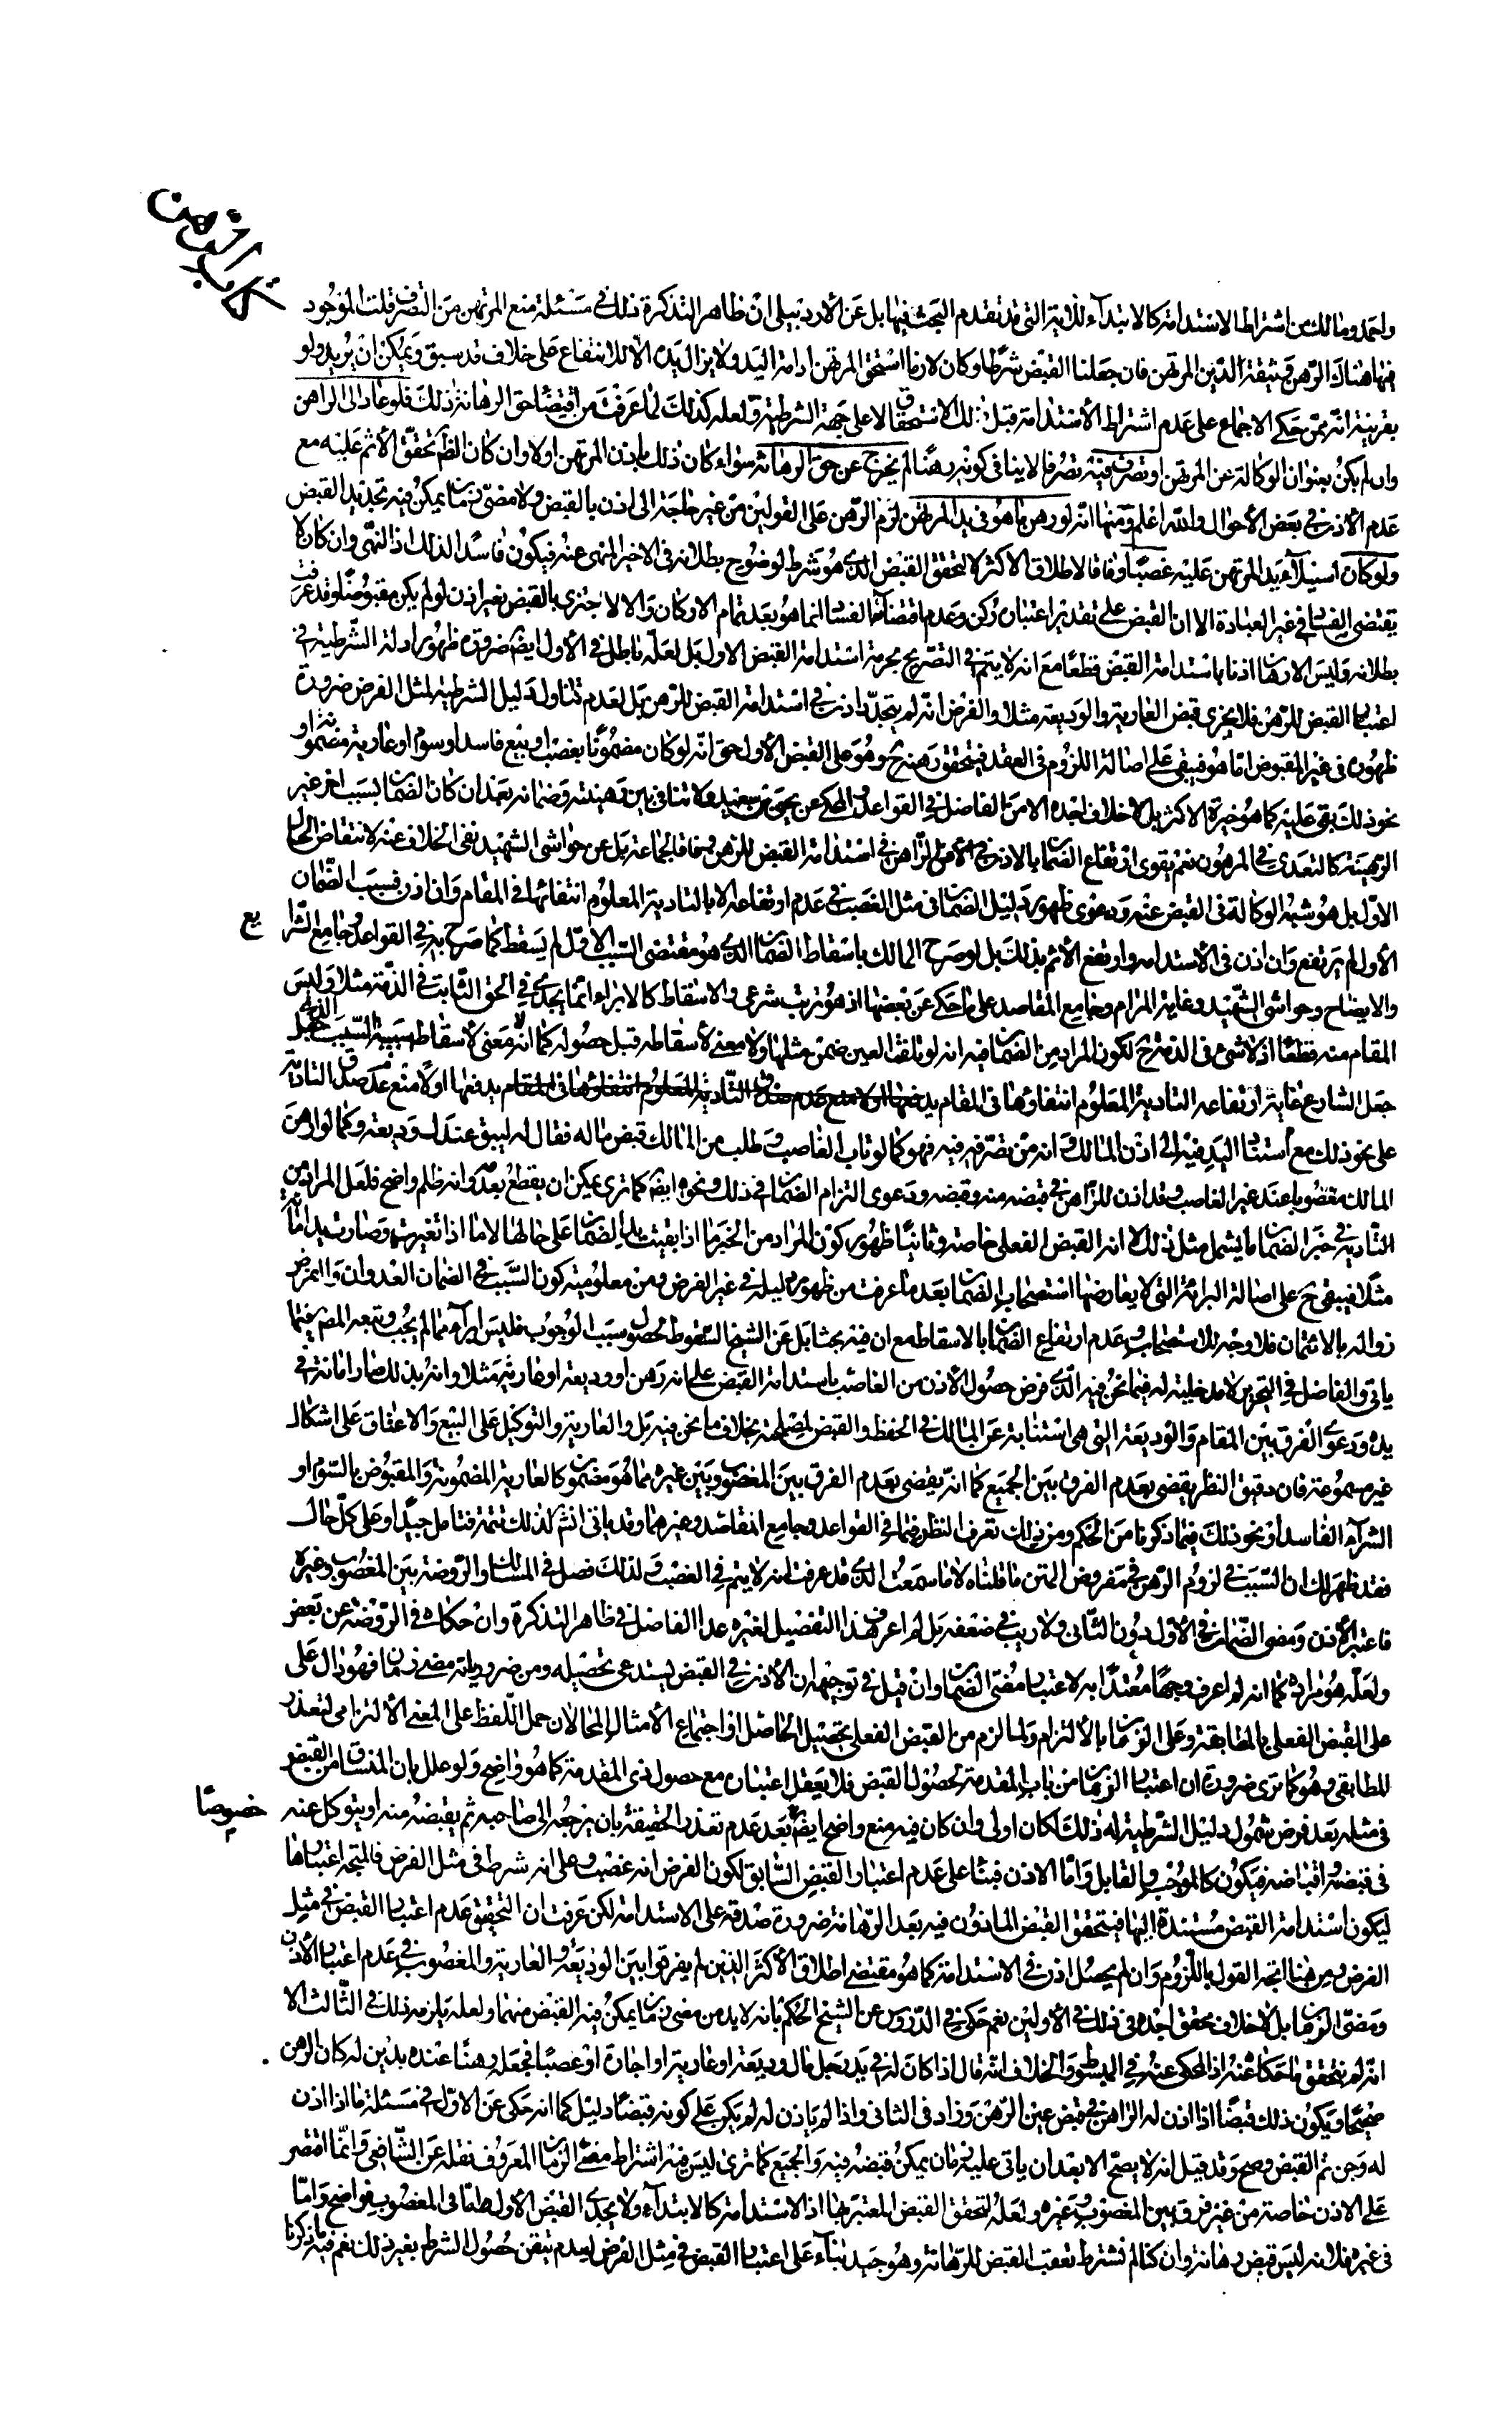 كتاب الرهن
واحمد ومالك من اشتراط الاستدامة كالابتداء للآية التي قد تقدم البحث فيها بل عن الأردبيلي ان ظاهر التذكرة ذلك في مسئلة منع المرتهن من التصرف قلت الموجود
فيها هناك الرهن وثيقة الدين المرتهن فان جعلنا القبض شرطا وكان لازما استحق المرتهن ادامة اليد ولا يزال يده الا للانتفاع على خلاف قد سبق ويمكن ان يريد ولو
بقرينة انه ممن حكي الاجماع على عدم اشتراط الأستدامة قبل ذلك الاستحقاق لا على جهة الشرطية ولعله كذلك لما عرفت من اقتضا حق الرهانة ذلك فلو عاد الى الراهن
وان لم يكن بعنوان الوكالة عن المرتهن او تصرف فيه تصرفا لا ينافي كونه رهنا لم يخرج عن حق الرهانة سواء كان ذلك باذن المرتهن اولا وان كان الظ تحقق الأثم عليه مع
عدم الأذن في بعض الأحوال والله اعلم ومنها انه لو رهن ما هو في يد المرتهن لزم الرهن على القولين من غير حاجة الى اذن بالقبض ولا مضي زمان يمكن فيه تجديد القبض
ولو كان استيلاء يد المرتهن عليه غصبا وفاقا لاطلاق الاكثر لا لتحقق القبض الذي هو شرط لوضوح بطلانه في الاخير المنهى عنه فيكون فاسدا لذلك اذ النهى وان كان لا
يقتضي الفساد في غير العبادة الا ان القبض على تقدير اعتباره ركن وعدم اقتضائه الفساد انما هو بعد تمام الاركان والا لاجتزى بالقبض بغير اذن لو لم يكن مقبوضا وقد عرفت
بطلانه وليس الارهان اذنا باستدامة القبض قطعا مع انه لا يتم في التصريح بحرمة استدامة القبض الاول بل لعله باطل في الأول ايضا ضرورة ظهور ادلة الشرطية في
اعتبار القبض للرهن فلا يجزى قبض العارية والوديعة مثلا والفرض انه لم يتجدد اذن في استدامة القبض للرهن بل لعدم تناول دليل الشرطية لمثل الفرض ضرورة
ظهوره في غير المقبوض اما هو فيبقى على اصالة اللزوم في العقد فيتحقق رهنه ح وهو على القبض الأول حتى انه لو كان مضمونا بغصب او بيع فاسد او سوم او عارية مضمونة او
نحو ذلك بقى عليه كما هو خيرة الاكثر بل لا خلاف اجده الا من الفاضل في القواعد والمحكي عن يحيى بن سعيد ولا تنافي بين رهينته وضمانه بعد ان كان الضمان بسبب اخر غير
الرهينة كالتعدى في المرهون نعم يقوى ارتفاع الضمان بالاذن من الراهن في استدامة القبض للرهن وفاقا لجماعة بل عن حواشى الشهيد نفى الخلاف عنه لانتقاض الحال
الاول بل هو شبه الوكالة في القبض عنه ودعوى ظهور دليل الضمان في مثل الغصب في عدم ارتفاعه الا بالتادية المعلوم انتفائها في المقام وان اذن فسبب الضمان
الأول لم يرتفع وان اذن في الأستدامة وارتفع الأثم بذلك بل لو صرح المالك باسقاط الضمان الذي هو مقتضى السبب الاول لم يسقط كما صرح به في القواعد وجامع الشرا
يع
والايضاح وحواشى الشهيد وغاية المرام وجامع المقاصد على ما حكي عن بعضها اذ هو ترتب شرعى والاسقاط كالابراء انما يجدى في الحق الثابت في الذمة مثلا وليس
المقام منه قطعا اذ لا شئ في الذمة ح لكون المراد من الضمان فيه انه لو تلفت العين ضمن مثلها ولا معنى لاسقاطه قبل حصوله كما انه لا معنى لاسقاط سببية السبب الذي جعل
جعل الشارع غاية ارتفاعه التادية المعلوم انتفاؤها في المقام يدفعها اولا منع عدم صدق التادية
على نحو ذلك مع استناد اليد فيه الى اذن المالك وانه من تصرفه فيه فهو كما لو تاب الغاصب وطلب من المالك قبض ماله فقال له ليبق عندك وديعة وكما لو ارهن
المالك مغصوبا عند غير الغاصب وقد اذن للراهن في قبضه منه وقبضه ودعوى التزام الضمان في ذلك ونحوه ايضا كما ترى يمكن ان يقطع بعدمه وانه ظلم واضح فلعل المراد من
التادية في خبر الضمان ما يشمل مثل ذلك لا انه القبض الفعلي خاصة وثانيا ظهور كون المراد من الخبر ما اذا بقيت يد الضمان على حالها لا ما اذا تغيرت وصارت يد امانة
مثلا فيبقى ح على اصالة البرائة التي لا يعارضها استصحاب الضمان بعد ما عرفت من ظهور دليله في غير الفرض ومن معلومية كون السبب في الضمان العدوان والفرض
زواله بالائتمان فلا وجه للاستصحاب وعدم ارتفاع الضمان بالاسقاط مع ان فيه بحثا بل عن الشيخ السقوط لحصول سبب الوجوب فليس ابراء مما لم يجب وتبعه المص فيما
ياتي والفاضل في التحرير لا مدخلية له فيما نحن فيه الذي فرض حصول الأذن من الغاصب باستدامة القبض على انه رهن او وديعة او عارية مثلا وانه بذلك صار امانة في
يده ودعوى الفرق بين المقام والوديعة التي هى استنابة عن المالك في الحفظ والقبض لمصلحته بخلاف ما نحن فيه بل والعارية والتوكيل على البيع والاعتاق على اشكال
غير مسموعة فان دقيق النظر يقضي بعدم الفرق بين الجميع كما انه يقضى بعدم الفرق بين المغصوب وبين غيره مما هو مضمون كالعارية المضمونة والمقبوض بالسوم او
الشراء الفاسد او نحو ذلك فيما ذكرنا من الحكم ومن ذلك تعرف النظر فيما في القواعد وجامع المقاصد وغيرهما وقد ياتي انشاء لذلك تتمة فتامل جيدا وعلى كل حال
فقد ظهر لك ان السبب في لزوم الرهن في مفروض المتن ما قلناه لا ما سمعت الذي قد عرفت انه لا يتم في الغصب ولذلك فصل في المسالك والروضة بين المغصوب وغيره
فاعتبر الأذن ومضى الزمان في الأول دون الثاني ولا ريب في ضعفه بل لم اعرف هذا التفصيل لغيره عدا الفاضل في ظاهر التذكرة وان حكاه في الروضة عن بعض
ولعله هو مراده كما انه لم اعرف وجها معتدا به لاعتبار مضى الزمان وان قيل في توجيهه ان الأذن في القبض يستدعى تحصيله ومن ضرورياته مضى زمان فهو دال على
على القبض الفعلي بالمطابقة وعلى الزمان بالألتزام ولما لزم من القبض الفعلي تحصيل الحاصل او اجتماع الأمثال المحالان حمل اللفظ على المعنى الألتزامي لتعذر
المطابقي وهو كما ترى ضرورة ان اعتبار الزمان من باب المقدمة لحصول القبض فلا يعقل اعتباره مع حصول ذي المقدمة كما هو واضح ولو علل بان المنساق من القبض
في مثله بعد فرض شمول دليل الشرطية له ذلك لكان اولى وان كان فيه منع واضح ايضا بعد عدم تعذر الحقيقة بان يرجعه الى صاحبه ثم يقبضه منه او يتوكل عنه
خصوصا
في قبضه واقباضه فيكون كالموجب والقابل واما الاذن فبنا على عدم اعتبار القبض السابق لكون الفرض انه غصب وعلى انه شرط في مثل الفرض فالمتجه اعتبارها
ليكون استدامة القبض مستندة اليها فيتحقق القبض الماذون فيه بعد الرهانة ضرورة صدقه على الاستدامة لكن عرفت ان التحقيق عدم اعتبار القبض في مثل
الفرض ومن هنا اتجه القول باللزوم وان لم يحصل اذن في الاستدامة كما هو مقتضى اطلاق الأكثر الذين لم يفرقوا بين الوديعة والعارية والمغصوب في عدم اعتبار الأذن
ومضي الزمان بل لا خلاف محقق اجده في ذلك في الأولين نعم حكى في الدروس عن الشيخ الحكم بانه لابد من مضى زمان يمكن فيه القبض منهما ولعله يلزمه ذلك في الثالث الا
انه لم نتحقق ما حكاه عنه اذ المحكى عنه في المبسوط والخلاف انه قال اذا كان له في يد رجل مال وديعة او عارية او اجارة او غصبا فجعله رهنا عنده بدين له كان الرهن
صحيحا ويكون ذلك قبضا اذا اذن له الراهن في قبض عين الرهن وزاد في الثاني واذا لم ياذن له لم يكن على كونه قبضا دليل كما انه حكى عن الاول في مسئلة ما اذا اذن
له وجن ثم القبض وصح وقد قيل انه لا يصح الا بعد ان ياتى عليه زمان يمكن قبضه فيه والجميع كما ترى ليس فيه اشتراط مضى الزمان المعروف نقله عن الشافعي وانما اقتصر
على الاذن خاصة من غير فرق بين المغصوب وغيره ولعله لتحقق القبض المعتبر بها اذ الاستدامة كالابتداء ولا يجدى القبض الأول اما في المغصوب فواضح واما
في غيره فلانه ليس قبض رهانة وان كنا لم نشترط تعقب القبض للرهانة وهو جيد بناء على اعتبار القبض في مثل الفرض لعدم تيقن حصول الشرط بغير ذلك نعم فيه ما ذكرنا